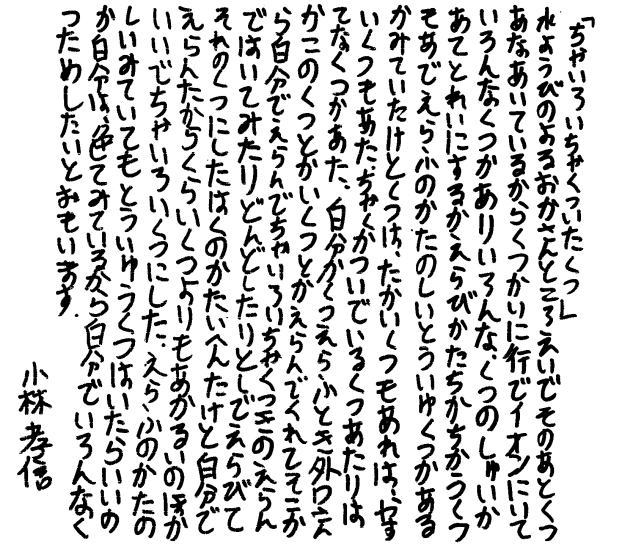 「ちゃいろいちゃくついたくつ」
水ようびのよるおかさんところえいでそのあとくつ
あなあいているからくつかいに行でイオンにいて
いろんなくつがありいろんな、くつのしゅいか
あてとれいにするかえらびかたちかちかうくつ
もあでえらふのかたのしいとういゆくつがある
かみていたけとくつは、たかいくつもあれは、やす
いくつもあた、ぢゃくがついでいるくつあたりは
てなくつかあた、白分がくつえらふとき外口さん
がこのくつとかいくつとかえらんでくれてそこか
ら白分でえらんでちゃいろいちゃくつきのえらん
ではいてみたりどんどしたりとしでえらびて
それのくつにしたはくのかたいへんたけと白分で
えらんたからくらいくつよりもあかるいのほか
いいでちゃいろいくつにした、えらふのかたの
しいみていてもとういゆうくつはいたらいいの
か白分は、色てみているから白分でいろんなく
つためしたいとおもいます.
小林孝信